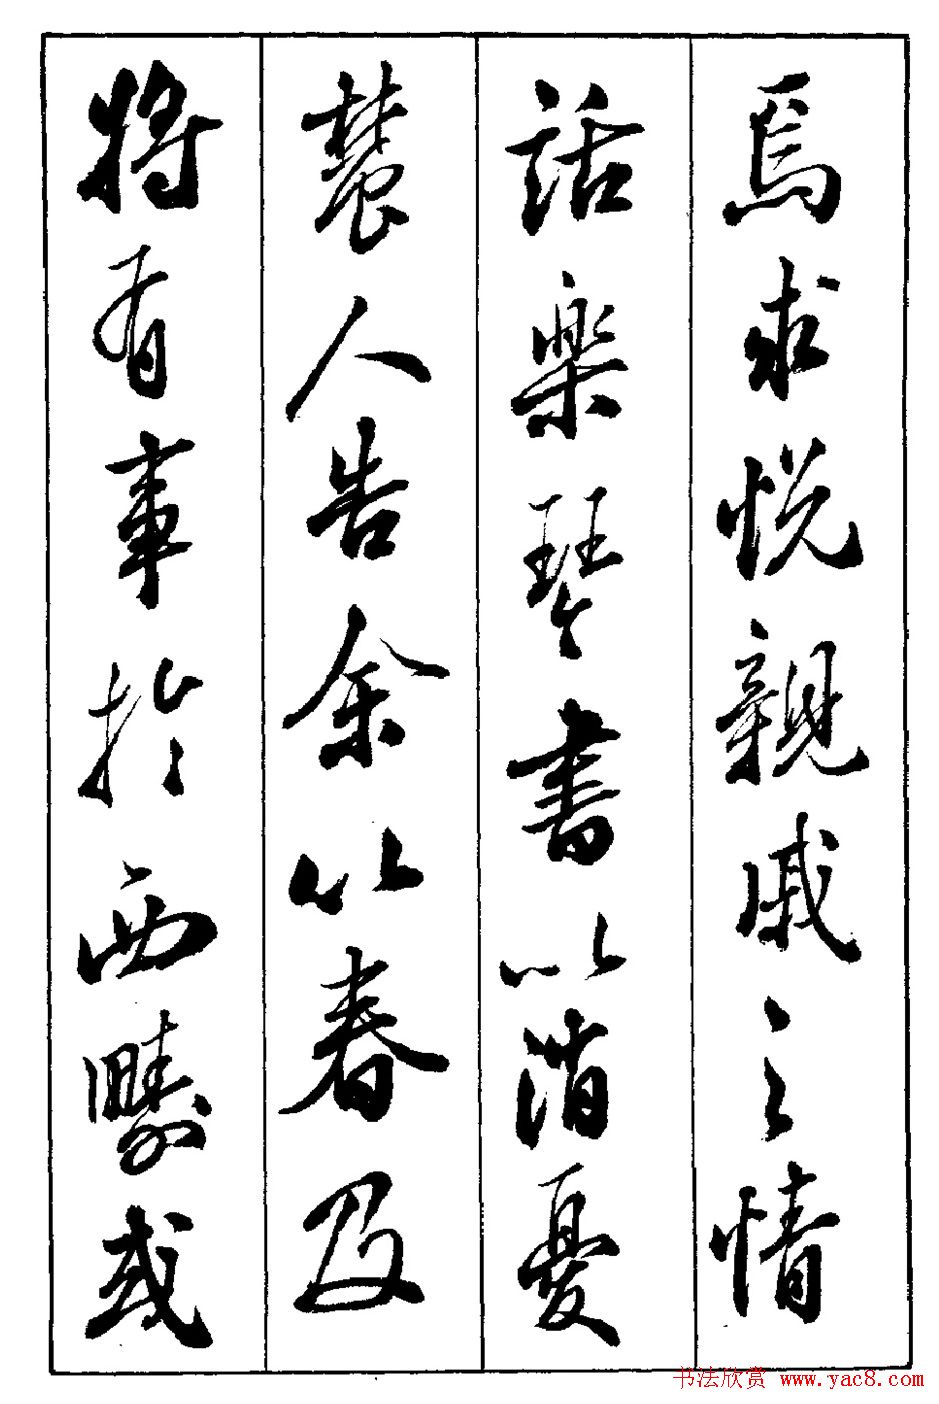 焉求悅親戚之情
話樂琴書以消憂
農人告余以春及
將有事於西疇或
书法欣赏 www.yac8.com